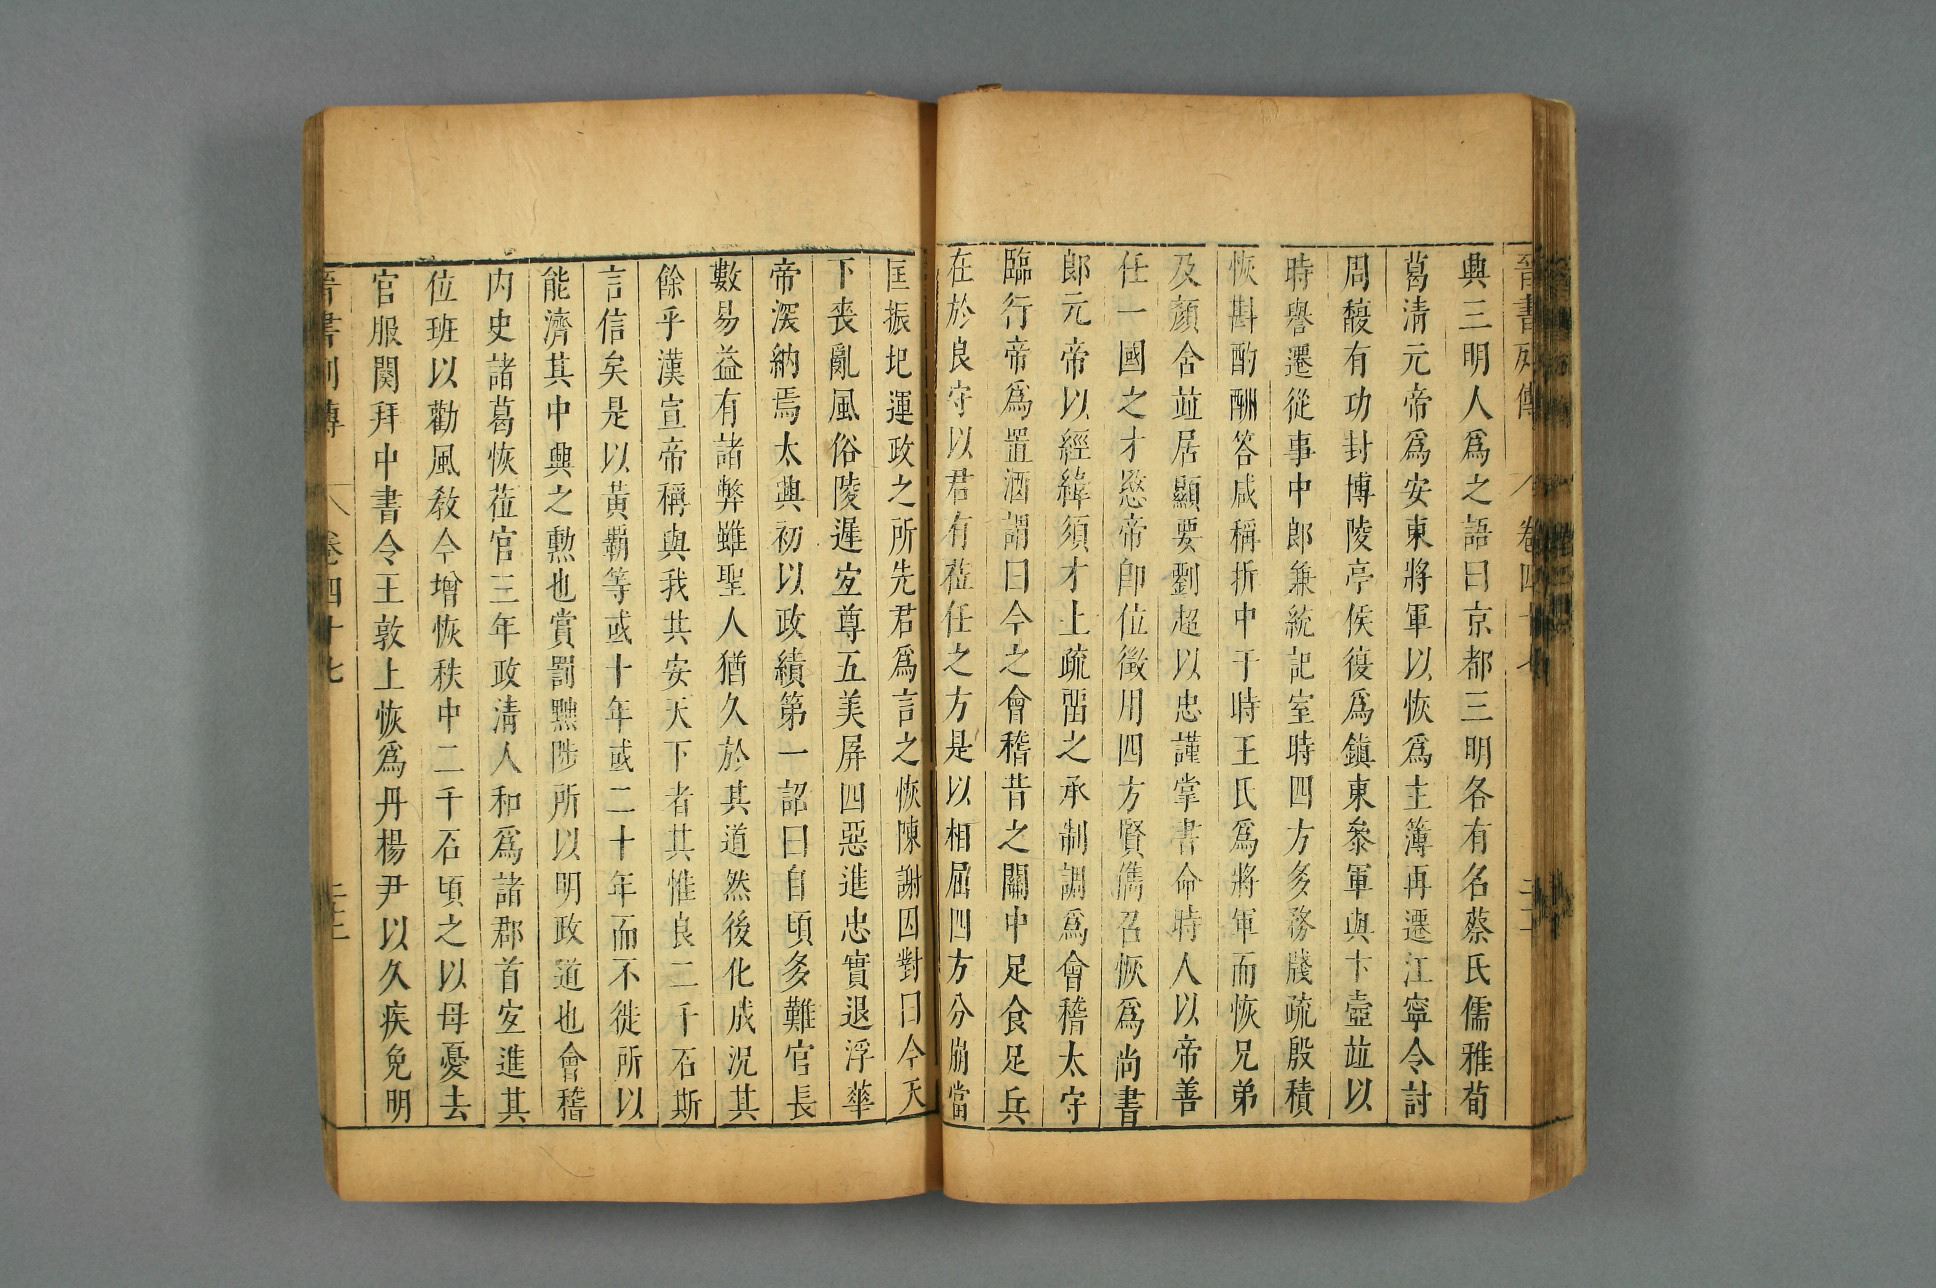 晉書列傳 卷四十七
典三明人爲之語曰京都三明各有名蔡氏儒雅荀
葛清元帝爲安東將軍以恢爲主簿再遷江寧令討
周馥有功封博陵亭侯復爲鎮東參軍與卞壼竝以
時譽遷從事中郎兼統記室時四方多務牋疏殷積
恢斟酌酬答咸稱折中于時王氏爲將軍而恢兄弟
及顏含竝居顯要劉超以忠謹掌書命時人以帝善
任一國之才愍帝卽位徵用四方賢儁召恢爲尚書
郎元帝以經緯須才上疏畱之承制調爲會稽太守
臨行帝爲置酒謂曰今之會稽昔之關中足食足兵
在於良守以君有莅任之方是以相屈四方分崩當
匡振圯運政之所先君爲言之恢陳謝因對曰今天
下喪亂風俗陵遲宐尊五美屏四惡進忠實退浮華
帝深納焉太興初以政績第一詔曰自頃多難官長
數易益有諸弊雖聖人猶久於其道然後化成況其
餘乎漢宣帝稱與我共安天下者其惟良二千石斯
言信矣是以黃霸等或十年或二十年而不徙所以
能濟其中興之勲也賞罰黜陟所以明政道也會稽
內史諸葛恢莅官三年政清人和爲諸郡首宐進其
位班以勸風敎今增恢秩中二千石頃之以母憂去
官服闋拜中書令王敦上恢爲丹楊尹以久疾免明
晉書列傳 卷四十七